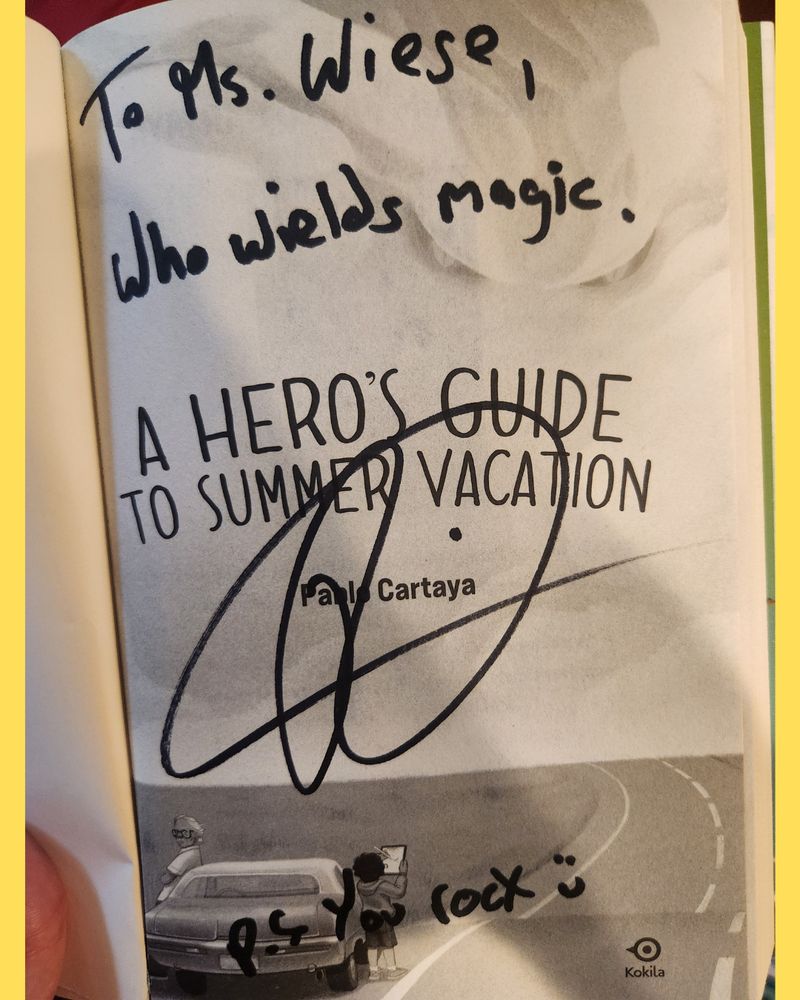 To Ms. Wiese,
Who wields magic.
A HERO'S GUIDE
TO SUMMER VACATION
Pablo Cartaya
P.S You rock
Kokila